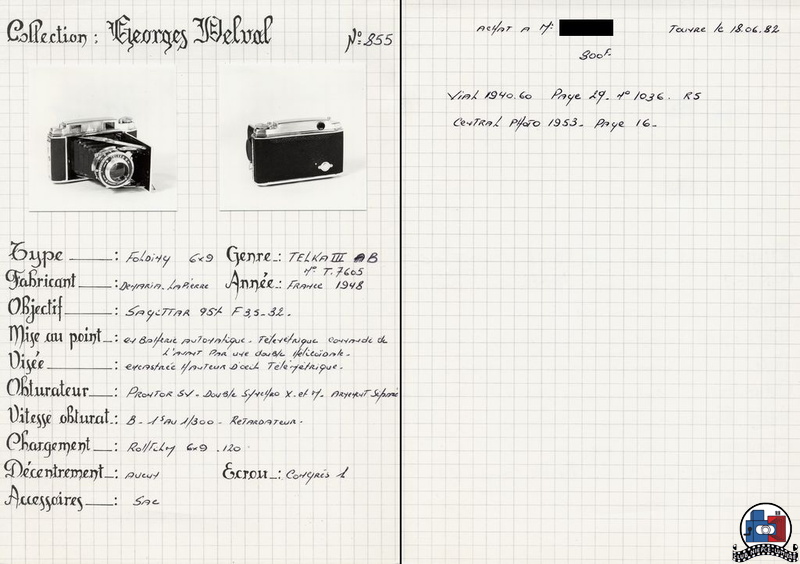 Collection : Georges Delval Nº: 855
Type : Folding 6x9 Genre : TELKA III B
nº T.7605
Fabricant : DEMARIA. LAPIERRE Année : FRANCE 1948
Objectif : SAGITTAR 95% F 3,5-32.
Mise au point : en BATTERIE AUTOMATIQUE. Télémétrique commande de
L'AVANT PAR une double Hélicoïdale.
Visée : encastrée HAUTEUR D'oeil Télémétrique.
Obturateur : PRONTOR SV - Double Synchro X. et M. ARMEMENT
Vitesse obturat : B - 1s AU 1/300 - RETARDATEUR.
Chargement : Rollfilm 6x9 . 120
Décentrement : AUCUN Ecrou : CONGRÈS 1
Accessoires : SAC
ACHAT A Mr: TOUVRE le 18.06.82
800F.
VIAL 1940.60 Page 29. nº 1036. R5
CENTRAL PHOTO 1953 - Page 16 -